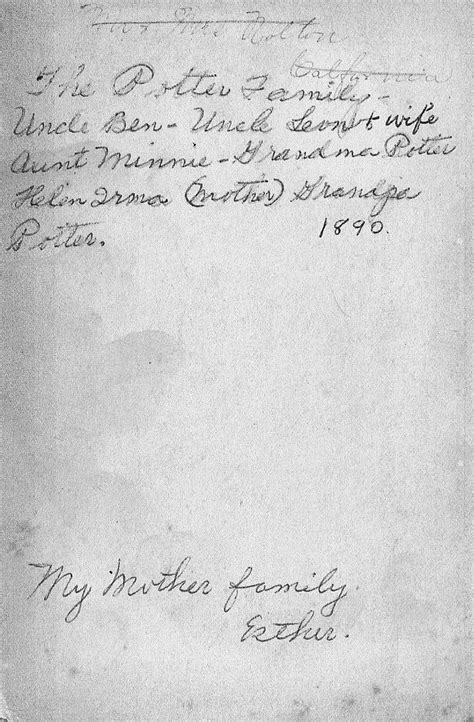 Mrs Holton
California
The Potter Family -
Uncle Ben - Uncle Leon & wife
Aunt Minnie - Grandma Potter
Helen Irma (Mother) Grandpa
Potter. 1890.
My Mother family.
Esther.